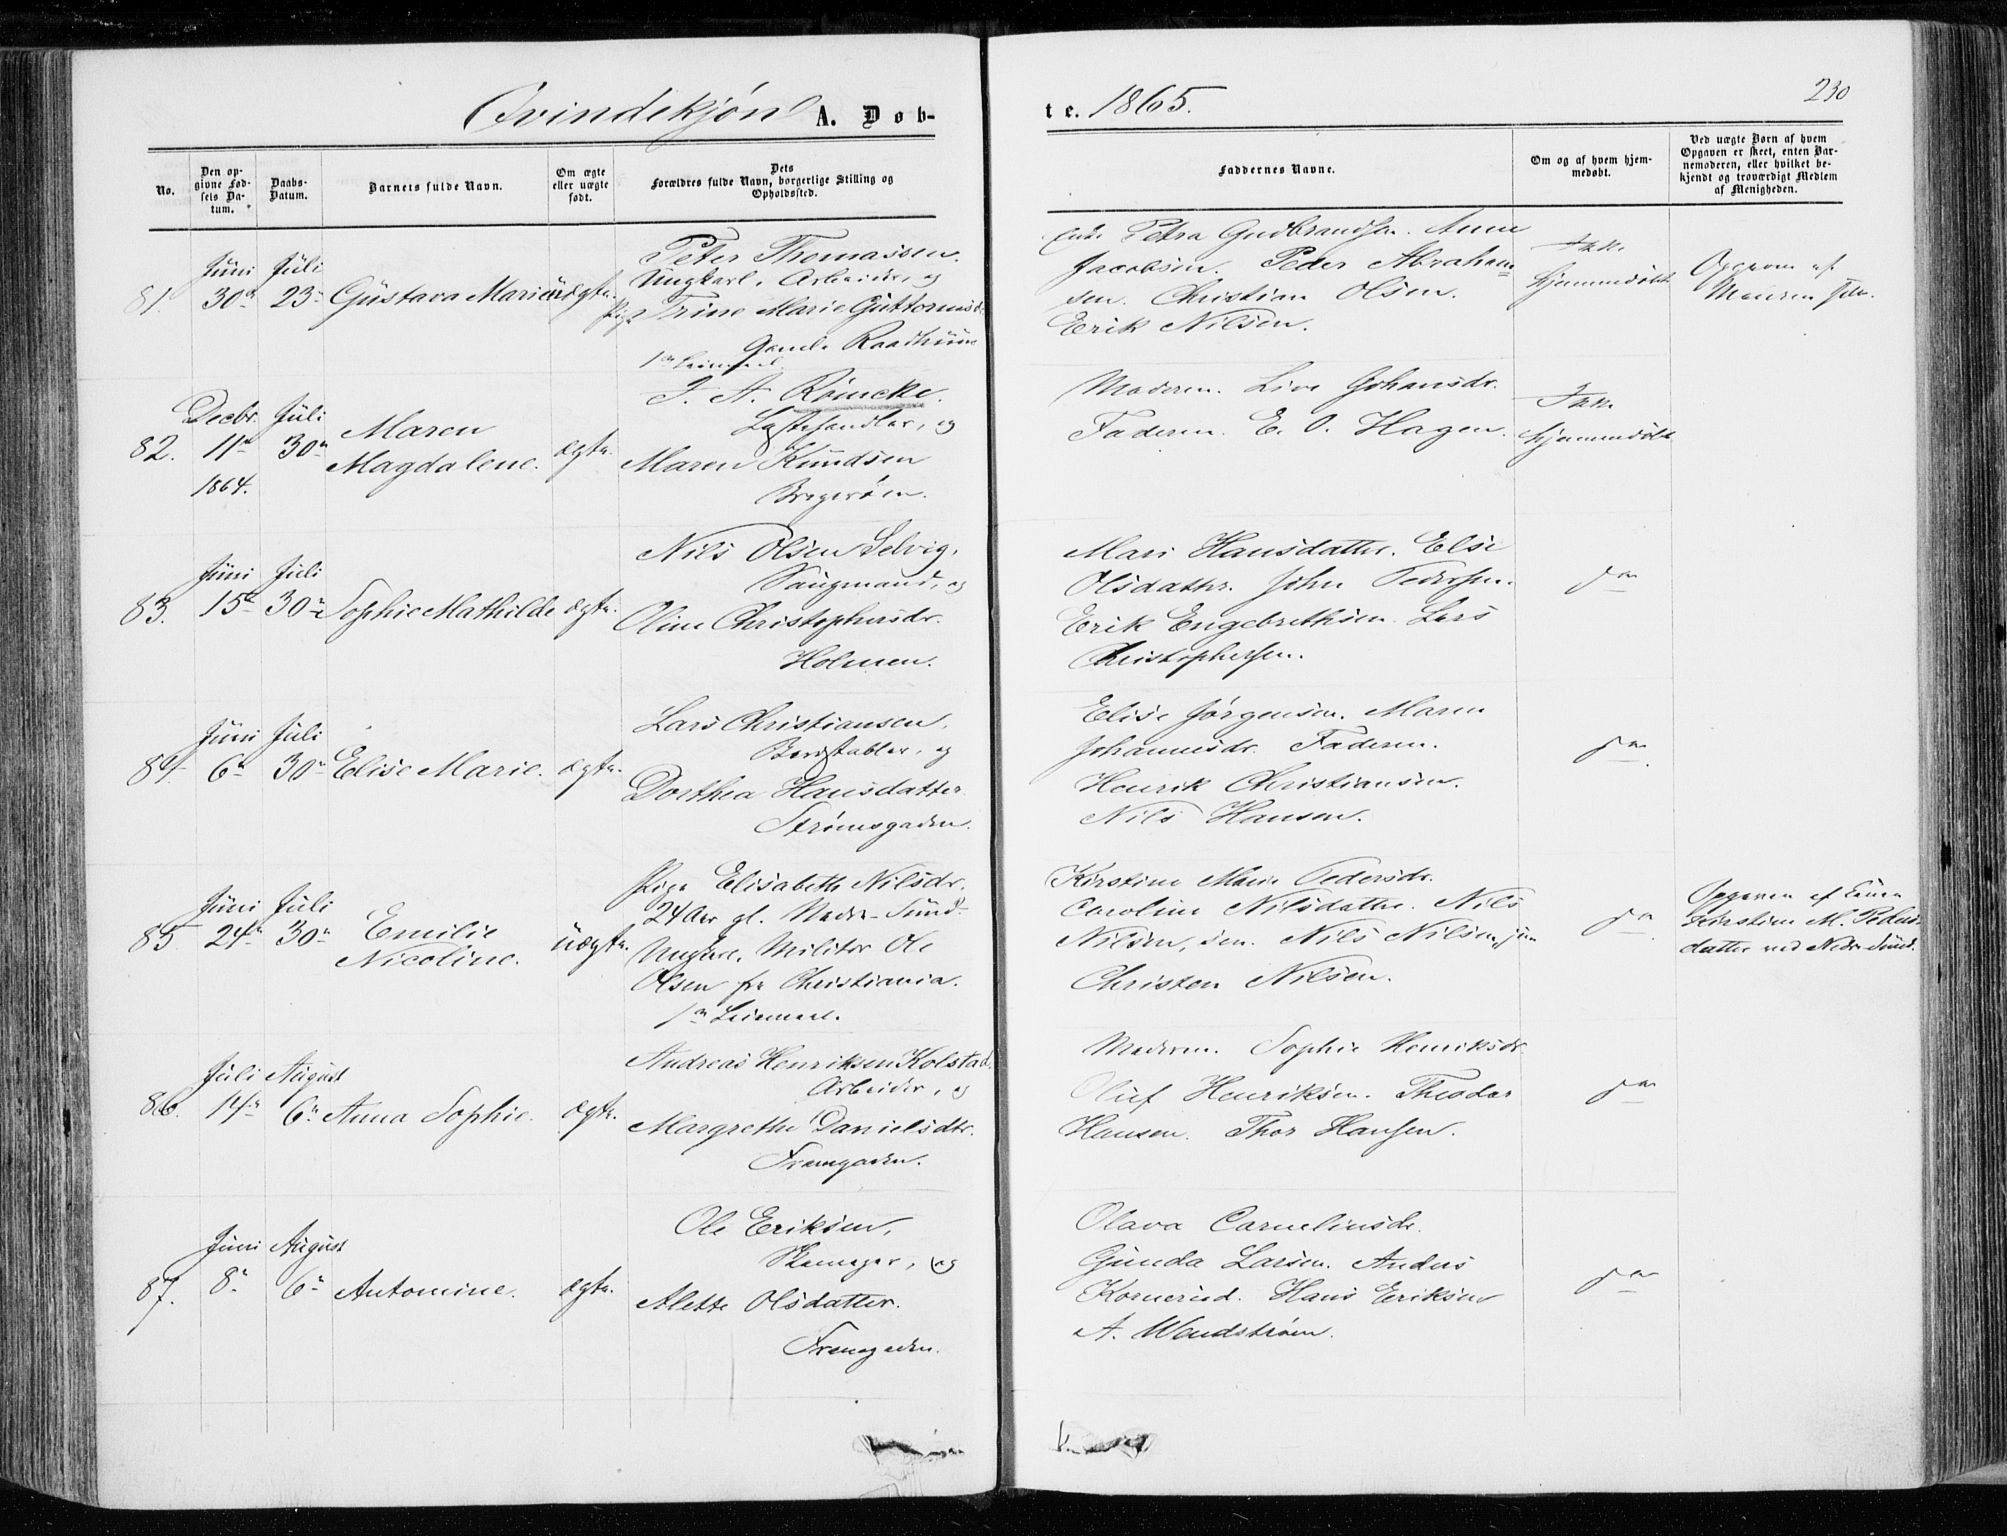 Qvindekjøn A. Døb-
te. 1865.
230
No.
Den op-
givne Fød-
sels Da-
tum.
Daabs-
Datum.
Barnets fulde Navn.
Om ægte
eller uægte
født.
Dets
Forældres fulde Navn, borgerlige Stilling og
Opholdssted.
Faddernes Navne.
Om og af hvem hjem-
medøbt.
Ved uægte Børn af hvem
Opgaven er skeet, enten Bar-
nemoderen, eller hvilket be-
kjendt og troværdigt Medlem
af Menigheden.
81.
Juni
30te
Juli
23de
Gustava Marie
uægte.
Peter Thomassen.
Ungkarl, Arbeider, og
Pige Trine Marie Guttormsd.
Gamle Raadhuus
1ste Leiermaal.
Petra Gudbrandsen. Anne
Jacobsen. Peder Abraham=
sen. Christian Olsen.
Erik Nilsen.
Ikke
hjemmedøbt
Opgaven af
Moderen selv.
82.
Decbr.
11te
1864.
Juli
30te
Maren
Magdalene.
ægte.
J. A. Römcke.
Lastehandler, og
Maren Knudsen
Bragerøen.
Moderen. Live Johansdr.
Faderen. E. O. Hagen.
Ikke
hjemmedøbt
83.
Juni
15de
Juli
30te
Sophie Mathilde
ægte.
Nils Olsen Selvig,
Saugmand, og
Oline Christophersdr.
Holmen.
Mari Hansdatter. Else
Olsdatter. John Pedersen.
Erik Engebrethsen. Lars
Christophersen.
84.
Juni
6te
Juli
30te
Elise Marie.
ægte.
Lars Christiansen,
Bordstabler, og
Dorthea Hansdatter
Strømsgaden.
Elise Jørgensen. Maren
Johannesdr. Faderen.
Henrik Christiansen.
Nils Hansen.
85
Juni
24de
Juli
30te
Emilie
Nicoline.
uægte.
Pige Elisabeth Nilsdr.
24 Aar gl. Nedre-Sund.
Ungk. Militær Ole
Olsen fra Christiania.
1ste Leiermaal.
Kirstine Marie Pedersdr.
Caroline Nilsdatter. Nils
Nilsen, sen. Nils Nilsen, jun
Christen Nilsen.
Opgaven af
Kirstine M. Peders
datter ved Nedre-Sund.
86.
Juli
14de
August
6te
Anna Sophie.
ægte.
Andreas Henriksen Kolstad,
Arbeider, og
Margrethe Danielsdtr.
Tramgaden.
Moderen. Sophie Henriksdr
Oluf Henriksen. Theodor
Hansen. Thor Hansen.
87.
Juni
8de
August
6te
Antomine.
ægte.
Ole Eriksen,
Skomager, og
Alette Olsdatter.
Tramgaden.
Olava Corneliusdr.
Gunda Larsen. Anders
Kornerud. Hans Eriksen
A. Wendstrøm.